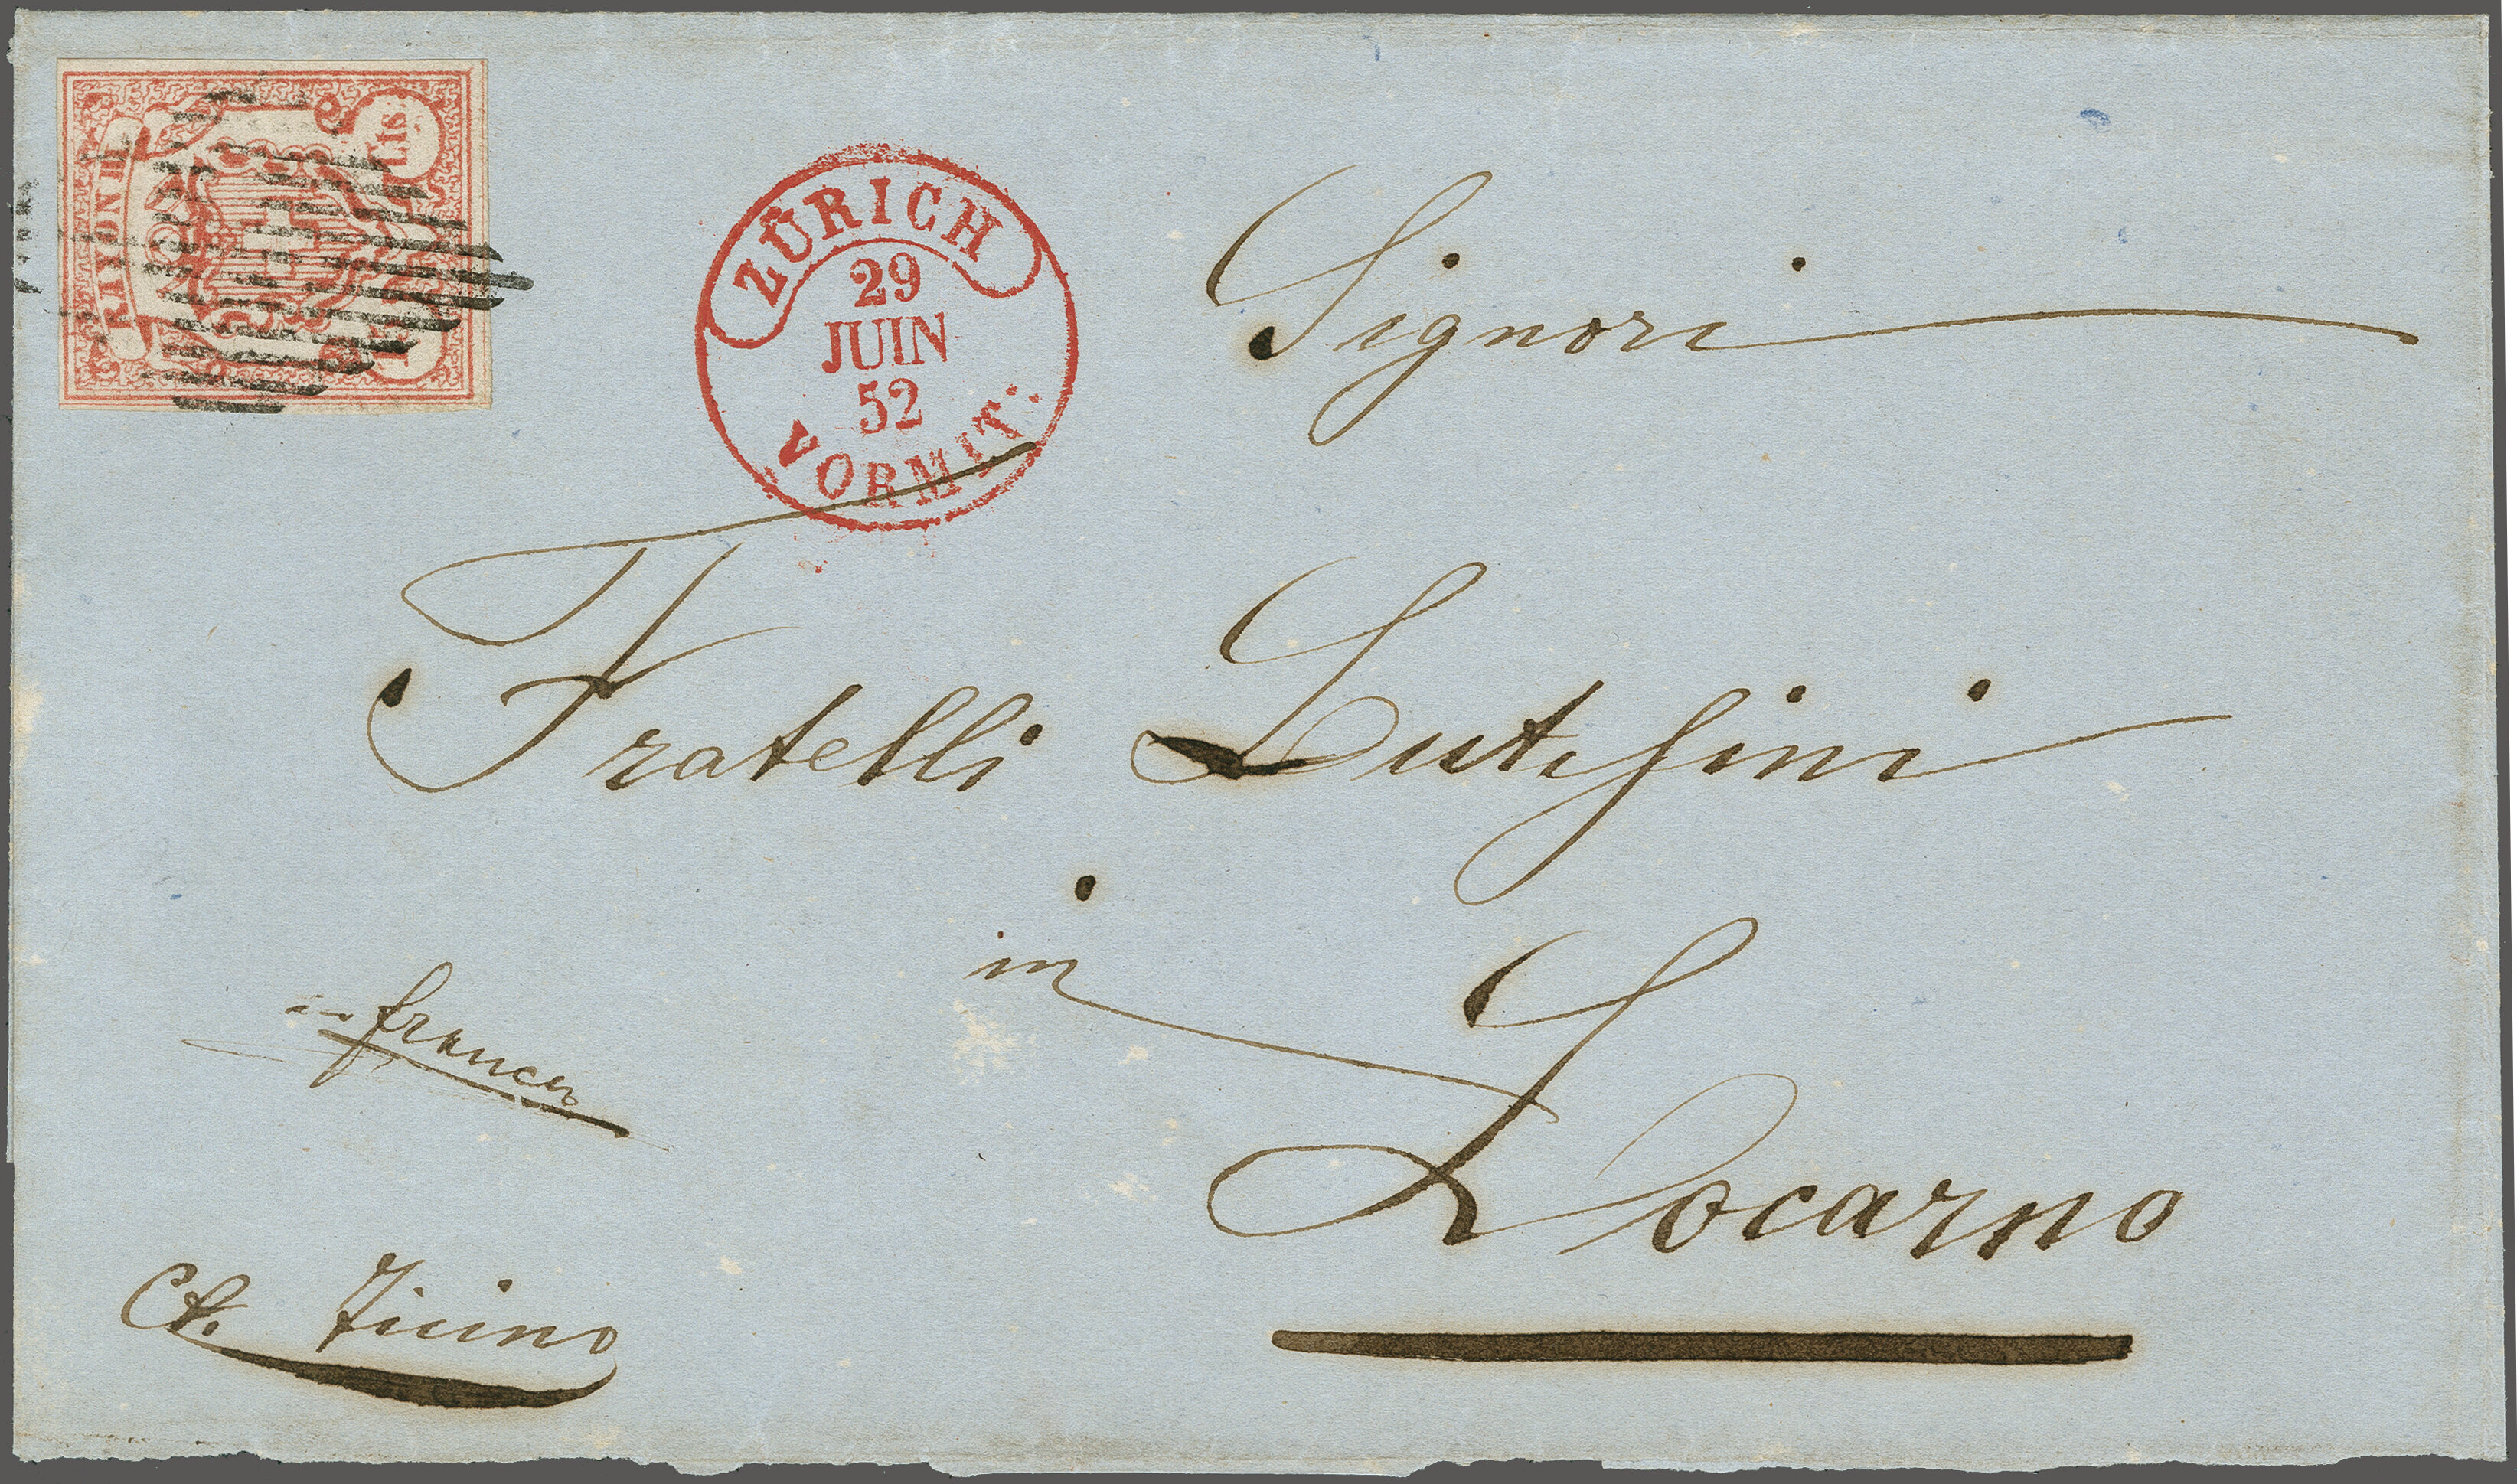 RAYON III.
Cts.
ZÜRICH
29
JUIN
52
VORMIT:
Signori
Fratelli
in
Locarno
franco
Ct. Ticino